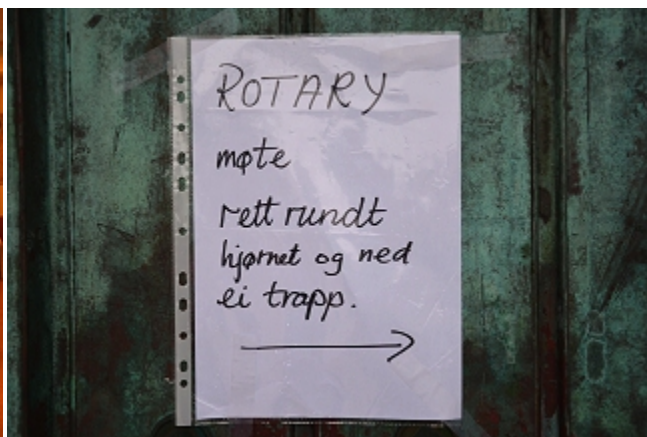 ROTARY
møte
rett rundt
hjørnet og ned
ei trapp.